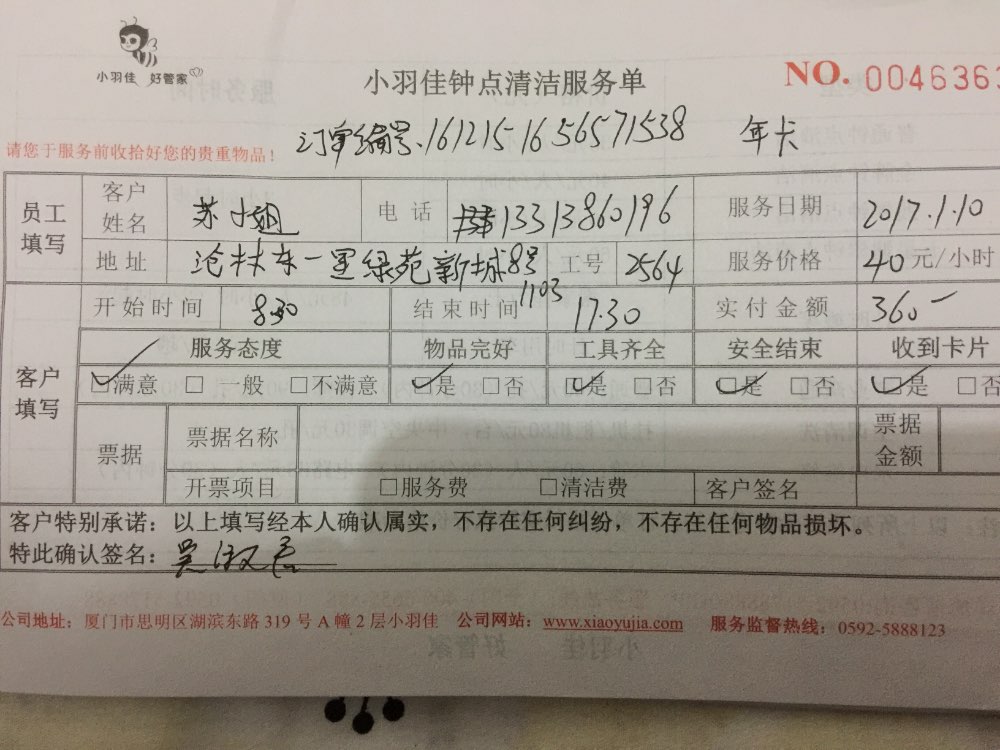 小羽佳 好管家
小羽佳钟点清洁服务单
NO. 0046363
订单编号.161215 1656571538 年卡
请您于服务前收拾好您的贵重物品！
员工填写 客户姓名 苏小姐 电话 13313860196 服务日期 2017.1.10
地址 沧林东一里绿苑新城8号1103 工号 2564 服务价格 40元/小时
客户填写 开始时间 8:30 结束时间 17.30 实付金额 360-
服务态度 物品完好 工具齐全 安全结束 收到卡片
☑满意 □一般 □不满意 ☑是 □否 ☑是 □否 ☑是 □否 ☑是 □否
票据 票据名称 票据金额
开票项目 □服务费 □清洁费 客户签名
客户特别承诺：以上填写经本人确认属实，不存在任何纠纷，不存在任何物品损坏。
特此确认签名：吴淑
公司地址：厦门市思明区湖滨东路 319 号 A 幢 2 层小羽佳 公司网站：www.xiaoyujia.com 服务监督热线：0592-5888123